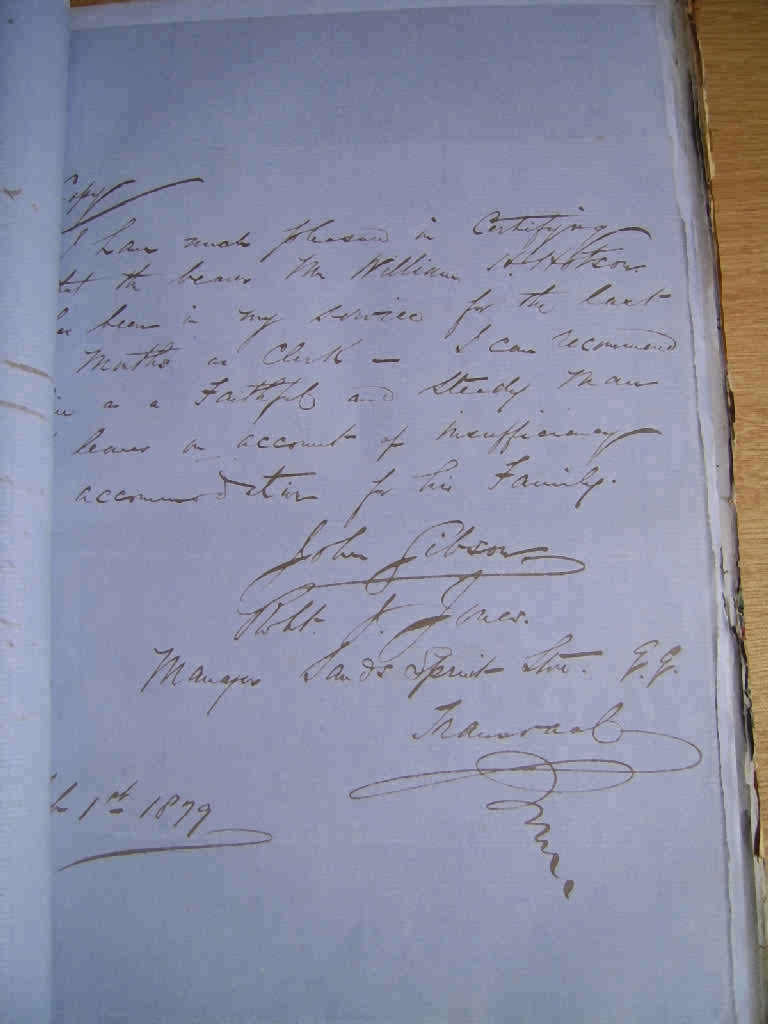 Copy
I have much pleasure in Certifying
that the bearer Mr William H. Hotson
has been in my service for the last
Months as Clerk — I can recommend
as a Faithful and Steady Man
leaves on account of insufficiency
accommodation for his Family.
John Gibson
Robt. J. Jones.
Manager Sands Spruit Store. G.G.
Transvaal
1st 1879